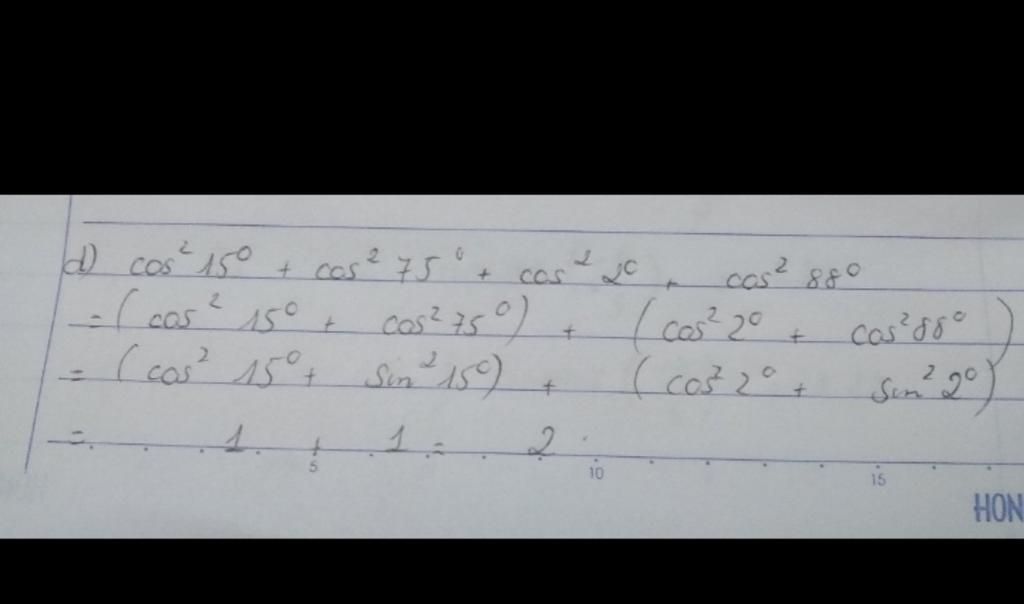 d) cos² 15⁰ + cos² 75⁰ + cos² 2⁰ + cos² 88⁰
= (cos² 15⁰ + cos² 75⁰) + (cos² 2⁰ + cos² 88⁰)
= (cos² 15⁰ + sin² 15⁰) + (cos² 2⁰ + sin² 2⁰)
= 1 + 1 = 2
5 10 15
HON